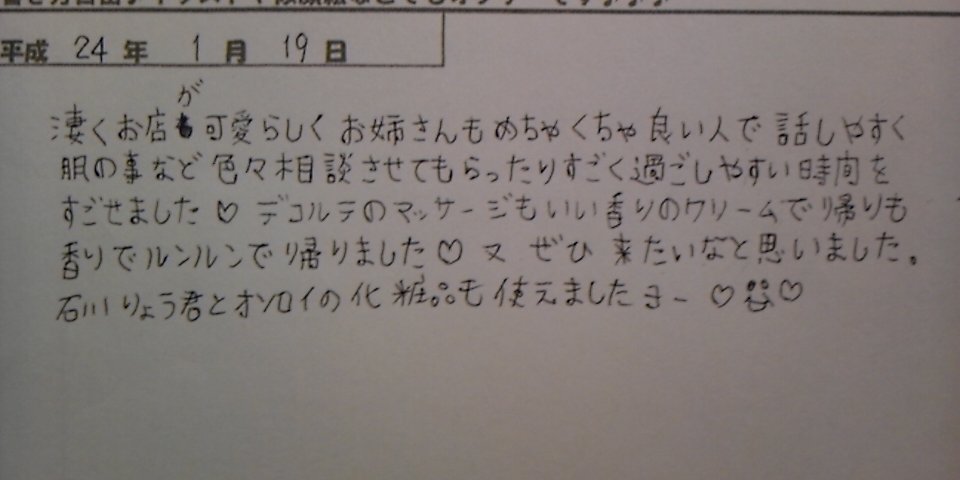 平成 24 年 1 月 19 日
凄くお店が可愛らしく お姉さんもめちゃくちゃ良い人で 話しやすく
肌の事など 色々相談させてもらったりすごく過ごしやすい時間を
すごせました♡ デコルテのマッサージもいい香りのクリームで帰りも
香りでルンルンで帰りました♡ 又 ぜひ 来たいなと思いました。
石川りょう君とオソロイの化粧品も使えましたヨー ♡♡